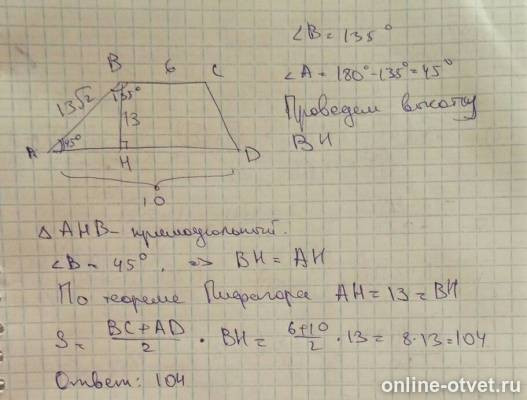 ∠B = 135°
∠A = 180° - 135° = 45°
Проведем высоту
BH
B 6 C
13√2 135°
13
A 45° H D
10
△ AHB - прямоугольный.
∠B = 45°. => BH = AH
По теореме Пифагора AH = 13 = BH
S = (BC + AD)/2 · BH = (6+10)/2 · 13 = 8 · 13 = 104
Ответ: 104
online-otvet.ru